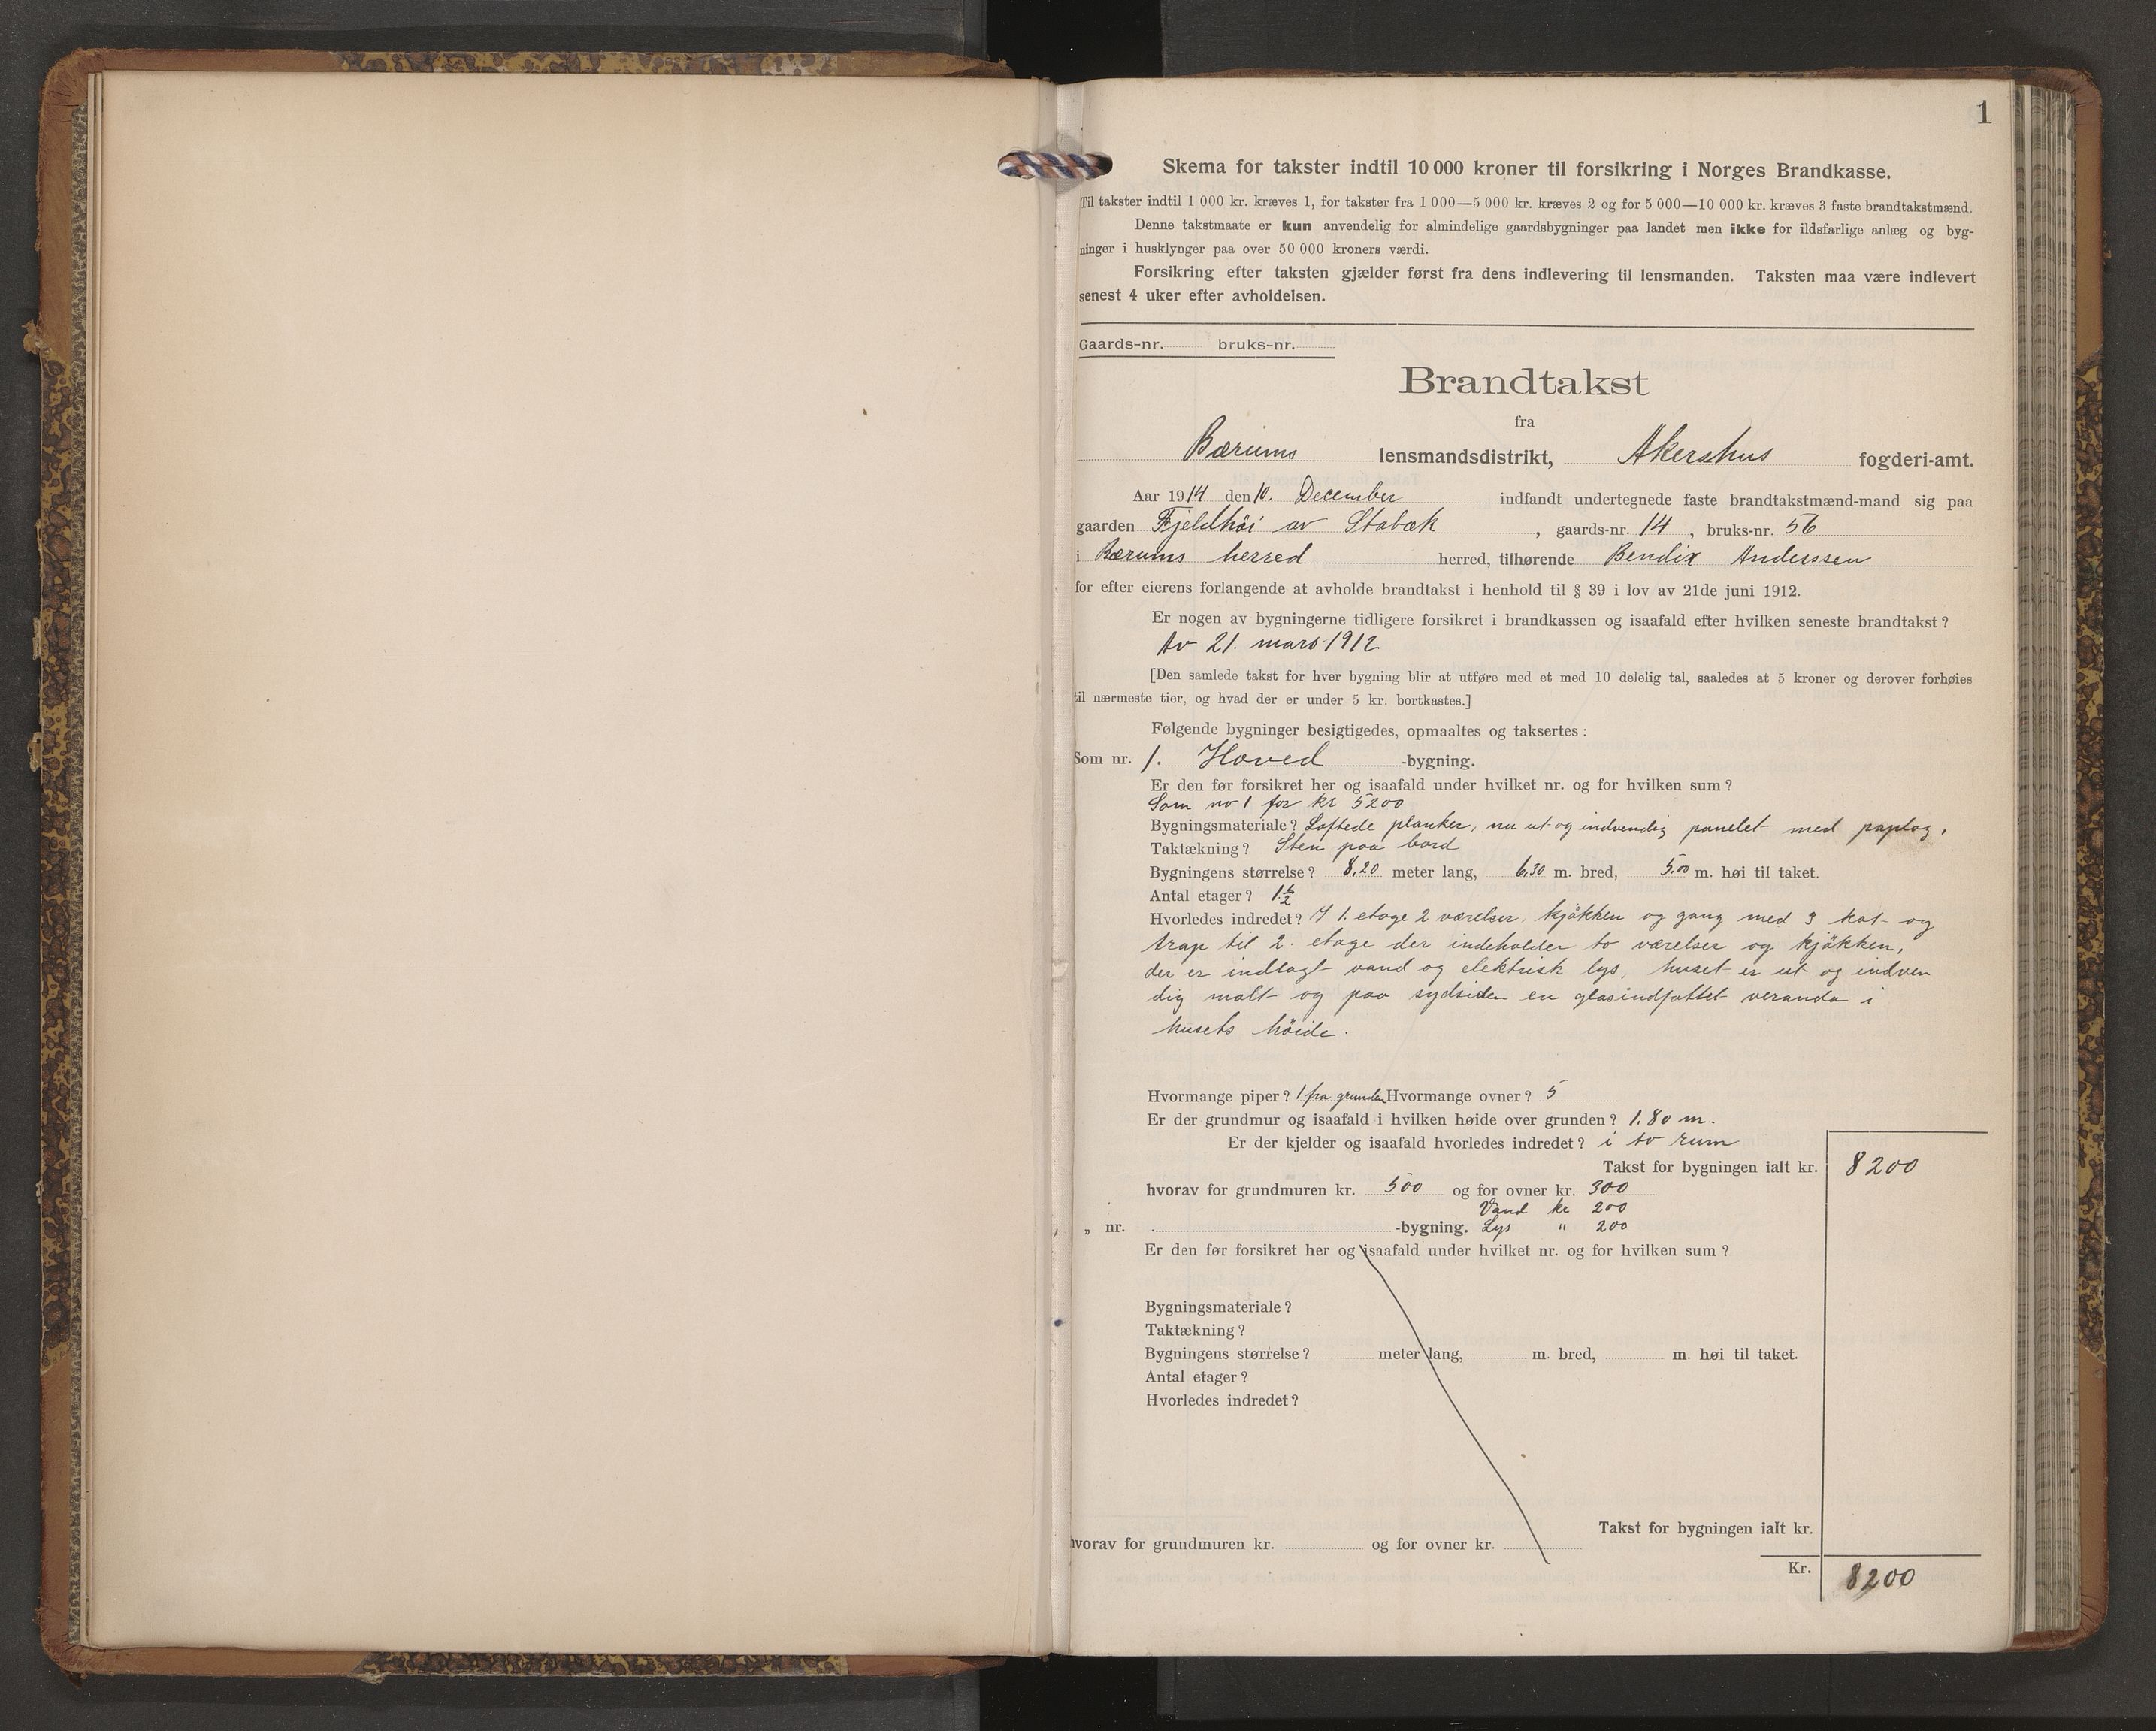 1
Skema for takster indtil 10 000 kroner til forsikring i Norges Brandkasse.
Til takster indtil 1 000 kr. kræves 1, for takster fra 1 000—5 000 kr. kræves 2 og for 5 000—10 000 kr. kræves 3 faste brandtakstmænd.
Denne takstmaate er kun anvendelig for almindelige gaardsbygninger paa landet men ikke for ildsfarlige anlæg og byg-
ninger i husklynger paa over 50 000 kroners værdi.
Forsikring efter taksten gjælder først fra dens indlevering til lensmanden. Taksten maa være indlevert
senest 4 uker efter avholdelsen.
Gaards-nr. bruks-nr.
Brandtakst
fra
Bærums lensmandsdistrikt, Akershus fogderi-amt.
Aar 1914 den 10. December indfandt undertegnede faste brandtakstmænd-mand sig paa
gaarden Fjeldhöi av Stabæk, gaards-nr. 14, bruks-nr. 56
i Bærums herred herred, tilhørende Bendix Anderssen
for efter eierens forlangende at avholde brandtakst i henhold til § 39 i lov av 21de juni 1912.
Er nogen av bygningerne tidligere forsikret i brandkassen og isaafald efter hvilken seneste brandtakst?
Av 21. mars 1912
[Den samlede takst for hver bygning blir at utføre med et med 10 delelig tal, saaledes at 5 kroner og derover forhøies
til nærmeste tier, og hvad der er under 5 kr. bortkastes.]
Følgende bygninger besigtigedes, opmaaltes og taksertes:
Som nr. 1. Hoved -bygning.
Er den før forsikret her og isaafald under hvilket nr. og for hvilken sum?
Som no 1 for kr 5200
Bygningsmateriale? Loftede planker, nu ut- og indvendig panelet med paplag,
Taktækning? Sten paa bord
Bygningens størrelse? 8,20 meter lang, 6,30 m. bred, 5,00 m. høi til taket.
Antal etager? 1 1/2
Hvorledes indredet? I 1. etage 2 værelser, kjökken og gang med 3 kot- og
trap til 2. etage der indeholder to værelser og kjökken,
der er indlagt vand og elektrisk lys, huset er ut- og indven
dig malt og paa sydsiden en glasindfattet veranda i
husets höide.
Hvormange piper? 1 fra grunden Hvormange ovner? 5
Er der grundmur og isaafald i hvilken høide over grunden? 1.80 m.
Er der kjelder og isaafald hvorledes indredet? i to rum
Takst for bygningen ialt kr. 8200
hvorav for grundmuren kr. 500 og for ovner kr. 300
Vand kr 200
„ nr. -bygning. Lys " 200
Er den før forsikret her og isaafald under hvilket nr. og for hvilken sum?
Bygningsmateriale?
Taktækning?
Bygningens størrelse? meter lang, m. bred, m. høi til taket.
Antal etager?
Hvorledes indredet?
Takst for bygningen ialt kr.
hvorav for grundmuren kr. og for ovner kr.
Kr. 8200